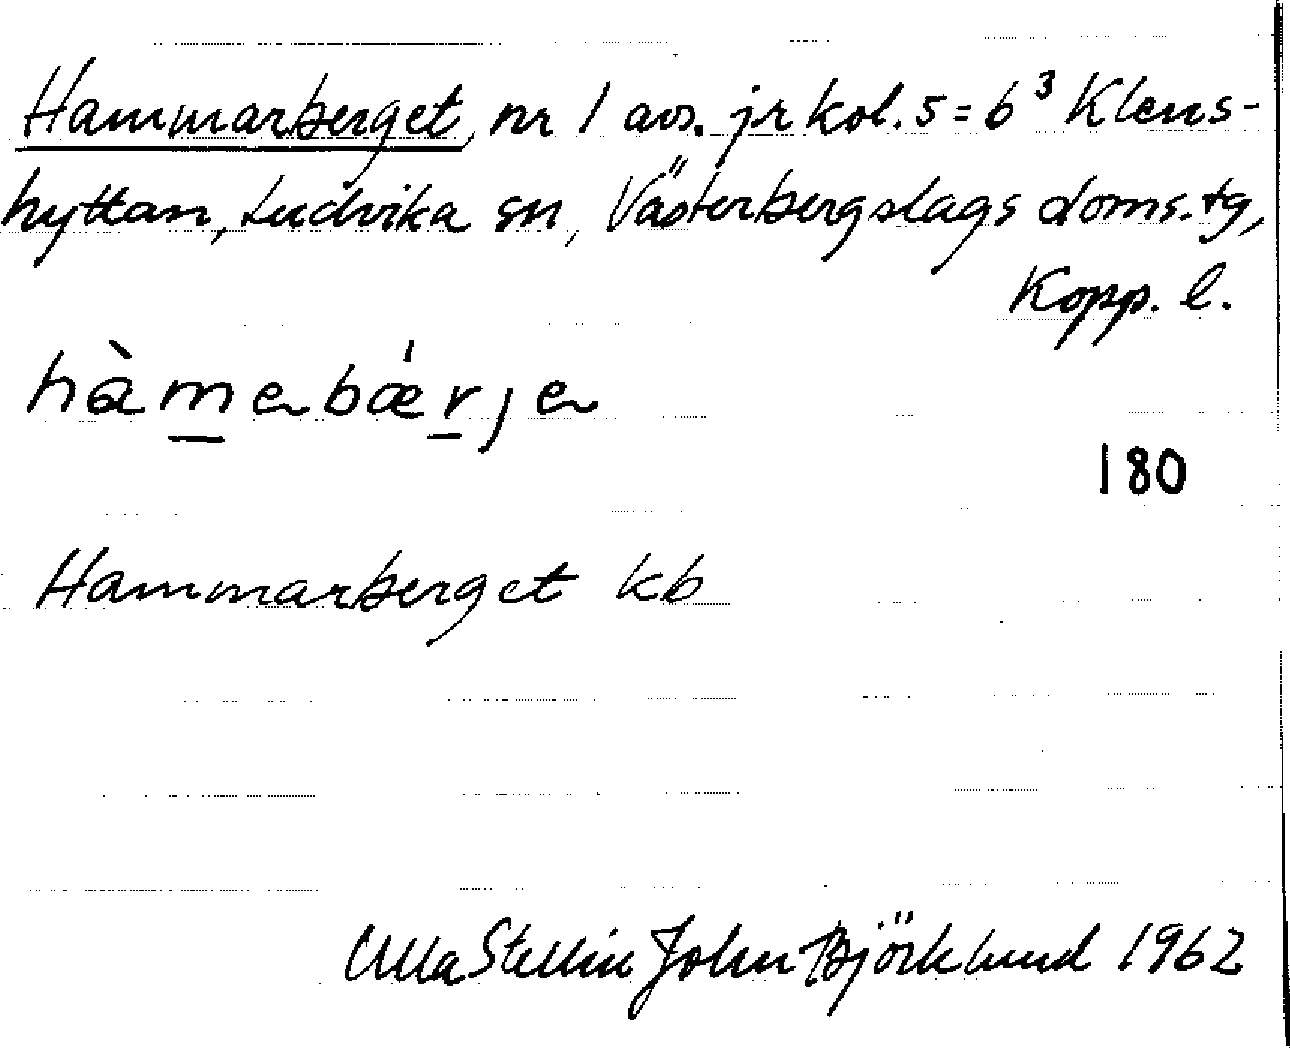 Hammarberget, nr 1 avs. jr kol. 5 = 6³ Klens-
hyttan, Ludvika sn, Västerbergslags doms. tg,
Kopp. l.
hàmɐbǽrjɐ
180
Hammarberget kb
Ulla Stellin John Björklund 1962